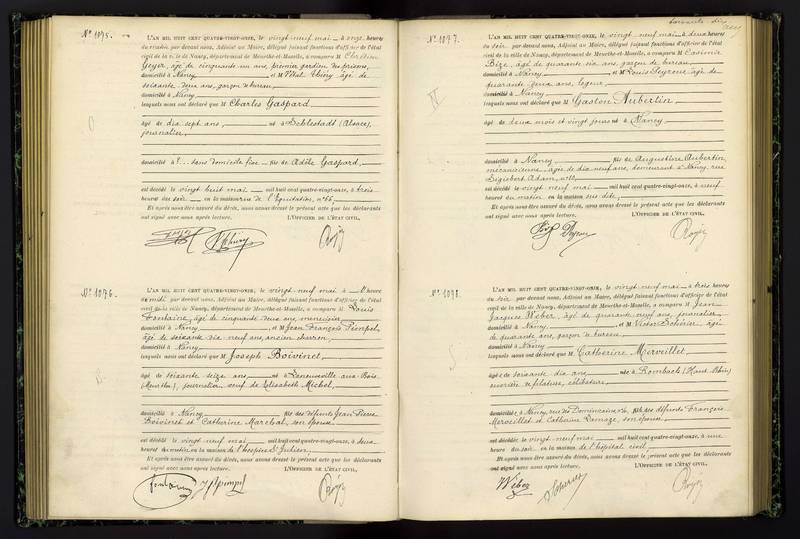 N° 1095.
L'AN MIL HUIT CENT QUATRE-VINGT-ONZE, le vingt neuf mai à onze heures
du matin par devant nous, Adjoint au Maire, délégué faisant fonctions d'officier de l'état
civil de la ville de Nancy, département de Meurthe-et-Moselle, a comparu M
Geyer, âgé de cinquante un ans, premier gardien des prisons,
domicilié à Nancy et M Vital Thiéry âgé de
soixante deux ans, garçon de bureau,
domicilié à Nancy
lesquels nous ont déclaré que M Charles Gaspard,
âgé de dix sept ans, né à Schlestadt (Alsace),
journalier,
domicilié à ?... sans domicile fixe fils de Adèle Gaspard,
est décédé le vingt huit mai mil huit cent quatre-vingt-onze, à trois
heures du soir en la maison rue de l'Equitation, n° 66,
Et après nous être assuré du décès, nous avons dressé le présent acte que les déclarants
ont signé avec nous après lecture. L'OFFICIER DE L'ÉTAT CIVIL,
N° 1096.
L'AN MIL HUIT CENT QUATRE-VINGT-ONZE, le vingt neuf mai à l'heure
de midi par devant nous, Adjoint au Maire, délégué faisant fonctions d'officier de l'état
civil de la ville de Nancy, département de Meurthe-et-Moselle, a comparu M Louis
Fontaine, âgé de cinquante deux ans, menuisier,
domicilié à Nancy et M Jean François Pimpel,
âgé de soixante dix neuf ans, ancien charron,
domicilié à Nancy
lesquels nous ont déclaré que M Joseph Boivinet,
âgé de soixante seize ans, né à Leneuveville aux Bois
(Meurthe), journalier, veuf de Elisabeth Michel,
domicilié à Nancy fils des défunts Jean Pierre
Boivinet et Catherine Marchal, son épouse,
est décédé le vingt neuf mai mil huit cent quatre-vingt-onze, à deux
heures du matin, en la maison de l'hospice St Julien,
Et après nous être assuré du décès, nous avons dressé le présent acte que les déclarants
ont signé avec nous après lecture. L'OFFICIER DE L'ÉTAT CIVIL,
Fontaine
N° 1097.
L'AN MIL HUIT CENT QUATRE-VINGT-ONZE, le vingt neuf mai à deux heures
du soir par devant nous, Adjoint au Maire, délégué faisant fonctions d'officier de l'état
civil de la ville de Nancy, département de Meurthe-et-Moselle, a comparu M Casimir
âgé de quarante six ans, garçon de bureau,
domicilié à Nancy et M Louis Peyreur âgé de
quarante deux ans, logeur,
domicilié à Nancy
lesquels nous ont déclaré que M Gaston Aubertin,
âgé de deux mois et vingt jours né à Nancy
domicilié à Nancy fils de Augustine Aubertin,
mécanicienne, âgée de dix neuf ans, demeurant à Nancy, rue
Sigisbert Adam, n° 10,
est décédé le vingt neuf mai mil huit cent quatre-vingt-onze, à neuf
heures du matin en la maison sus dite,
Et après nous être assuré du décès, nous avons dressé le présent acte que les déclarants
ont signé avec nous après lecture. L'OFFICIER DE L'ÉTAT CIVIL,
N° 1098.
L'AN MIL HUIT CENT QUATRE-VINGT-ONZE, le vingt neuf mai à trois heures
du soir par devant nous, Adjoint au Maire, délégué faisant fonctions d'officier de l'état
civil de la ville de Nancy, département de Meurthe-et-Moselle, a comparu M Jean
Jacques Weber, âgé de quarante neuf ans, journalier,
domicilié à Nancy et M Victor âgé
de quarante ans, garçon de bureau,
domicilié à Nancy
lesquels nous ont déclaré que M Catherine Merveillet,
âgée de soixante dix ans, née à Rombach (Haut Rhin)
ouvrière de filature, célibataire,
domiciliée à Nancy, rue des Dominicains fille des défunts François
Merveillet et Catherine son épouse,
est décédée le vingt neuf mai mil huit cent quatre-vingt-onze, à une
heure du soir en la maison de l'hôpital civil,
Et après nous être assuré du décès, nous avons dressé le présent acte que les déclarants
ont signé avec nous après lecture. L'OFFICIER DE L'ÉTAT CIVIL,
Weber